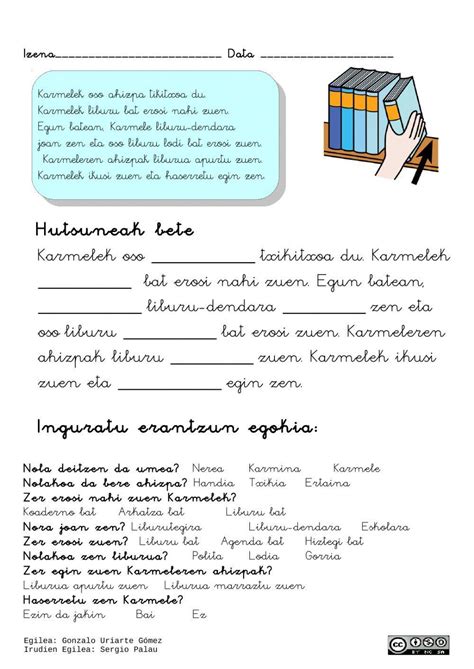 Izena_________________________ Data ____________________
Karmelek oso ahizpa tikitxoa du.
Karmelek liburu bat erosi nahi zuen.
Egun batean, Karmele liburu-dendara
joan zen eta oso liburu lodi bat erosi zuen.
Karmeleren ahizpak liburua apurtu zuen.
Karmelek ikusi zuen eta haserretu egin zen.
Hutsuneak bete
Karmelek oso __________ txikitxoa du. Karmelek
_________ bat erosi nahi zuen. Egun batean,
__________ liburu-dendara ________ zen eta
oso liburu ________ bat erosi zuen. Karmeleren
ahizpak liburu ________ zuen. Karmelek ikusi
zuen eta __________ egin zen.
Inguratu erantzun egokia:
Nola deitzen da umea? Nerea Karmina Karmele
Nolakoa da bere ahizpa? Handia Txikia Ertaina
Zer erosi nahi zuen Karmelek?
Koaderno bat Arkatza bat Liburu bat
Nora joan zen? Liburutegira Liburu-dendara Eskolara
Zer erosi zuen? Liburu bat Agenda bat Hiztegi bat
Nolakoa zen liburua? Polita Lodia Gorria
Zer egin zuen Karmeleren ahizpak?
Liburua apurtu zuen Liburua marraztu zuen
Haserretu zen Karmele?
Ezin da jakin Bai Ez
Egilea: Gonzalo Uriarte Gómez
Irudien Egilea: Sergio Palau
CC
BY NC SA